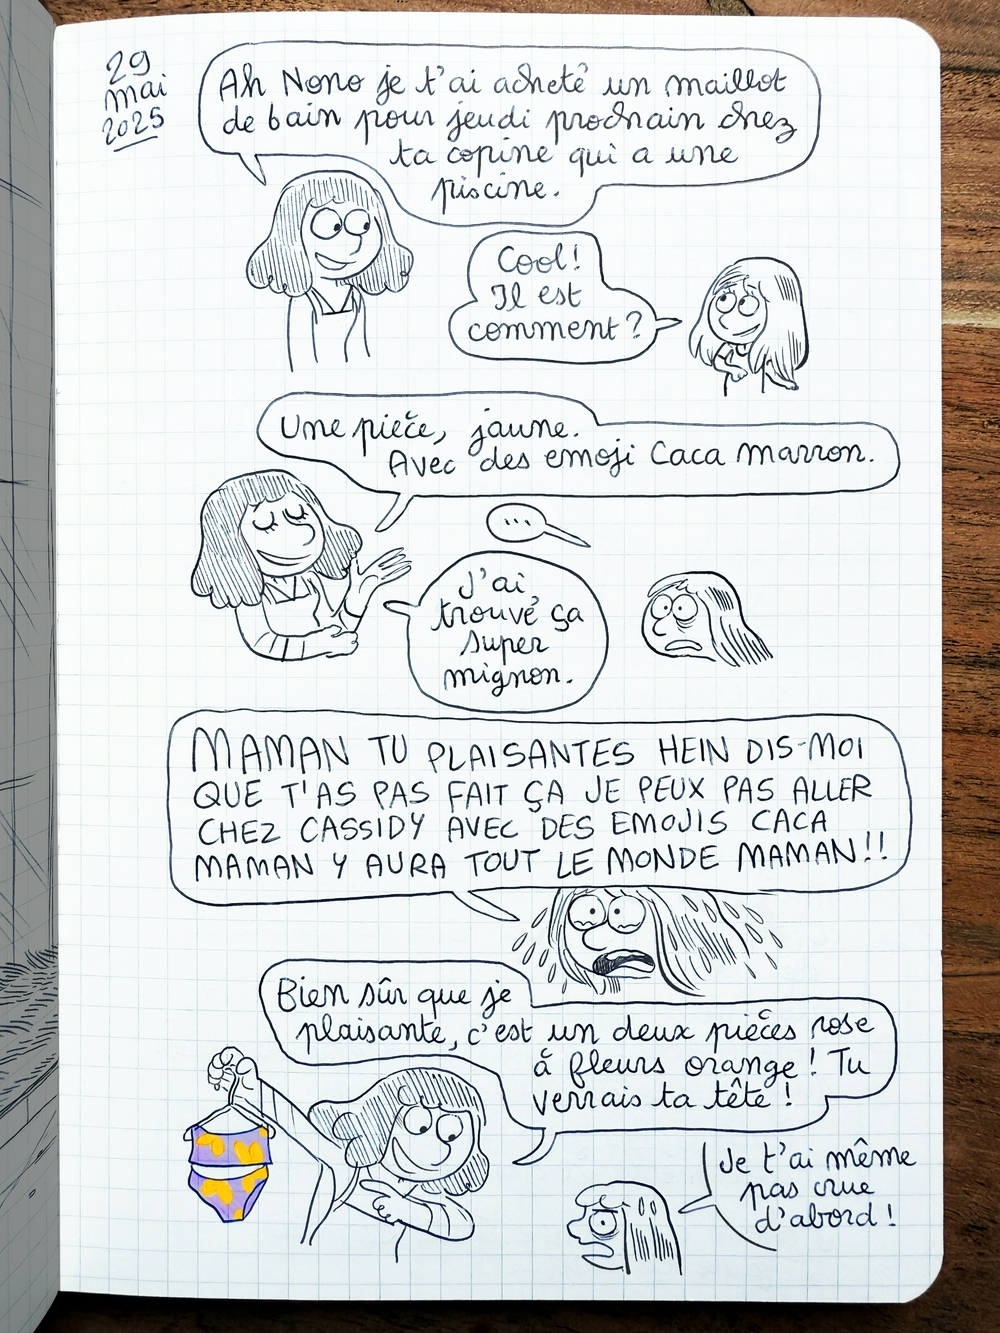 29
mai
2025
Ah Nono je t'ai acheté un maillot
de bain pour jeudi prochain chez
ta copine qui a une
piscine.
Cool!
Il est
comment ?
Une pièce, jaune.
Avec des emoji Caca marron.
...
J'ai
trouvé ça
super
mignon.
MAMAN TU PLAISANTES HEIN DIS-MOI
QUE T'AS PAS FAIT ÇA JE PEUX PAS ALLER
CHEZ CASSIDY AVEC DES EMOJIS CACA
MAMAN Y AURA TOUT LE MONDE MAMAN!!
Bien sûr que je
plaisante, c'est un deux pièces rose
à fleurs orange ! Tu
verrais ta tête !
Je t'ai même
pas crue
d'abord !